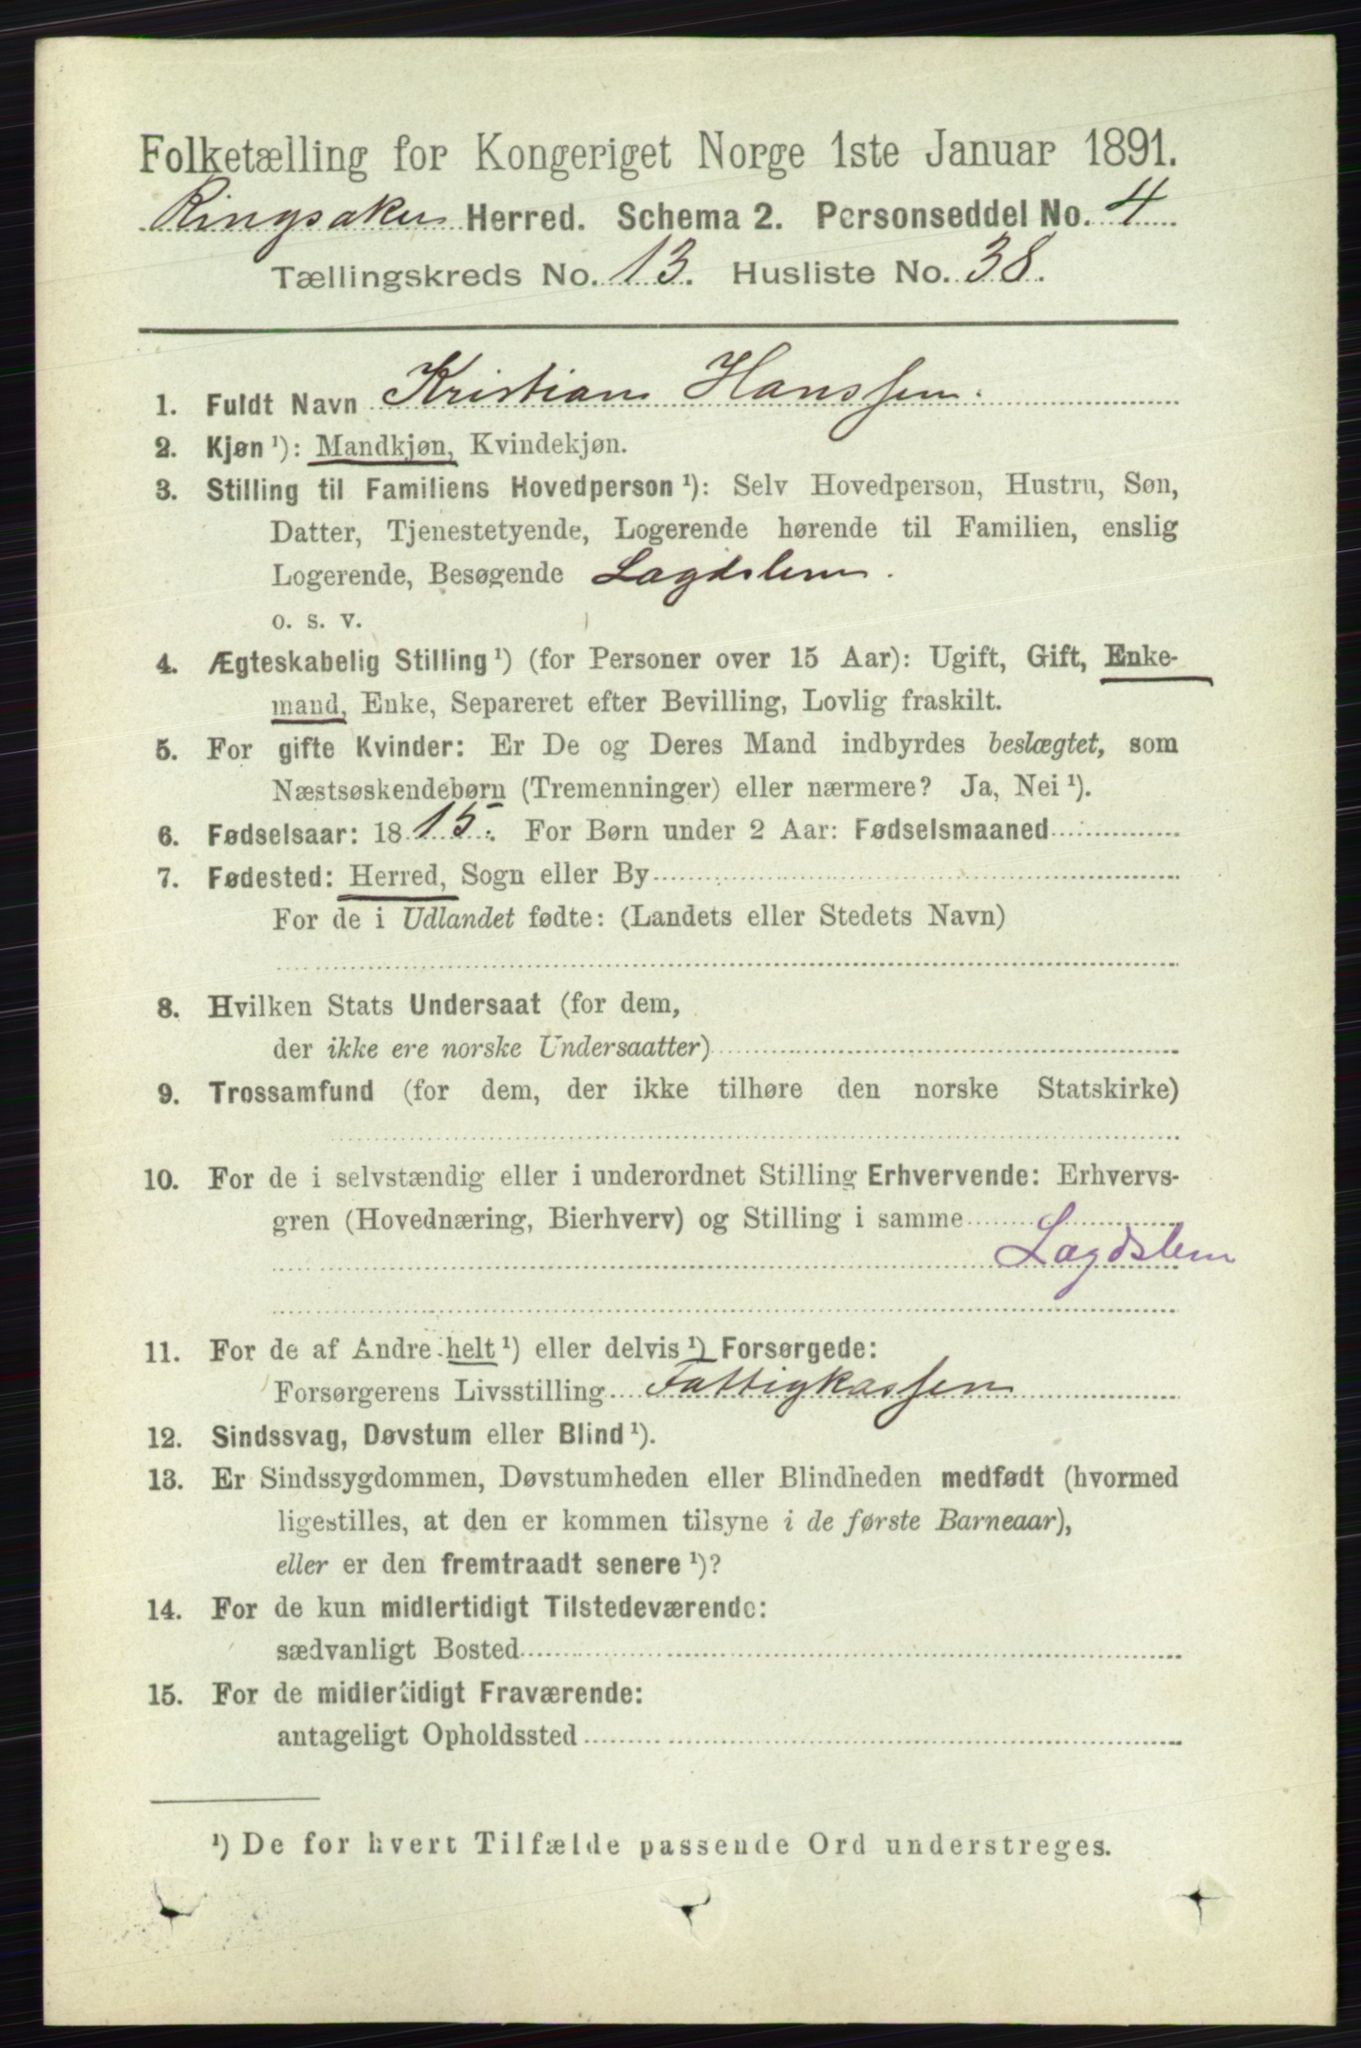 Folketælling for Kongeriget Norge 1ste Januar 1891.
Ringsaker Herred. Schema 2. Personseddel No. 4
Tællingskreds No. 13. Husliste No. 38.
1. Fuldt Navn Kristian Hanssen.
2. Kjøn ¹): Mandkjøn, Kvindekjøn.
3. Stilling til Familiens Hovedperson ¹): Selv Hovedperson, Hustru, Søn,
Datter, Tjenestetyende, Logerende hørende til Familien, enslig
Logerende, Besøgende Lægdslem.
o. s. v.
4. Ægteskabelig Stilling ¹) (for Personer over 15 Aar): Ugift, Gift, Enke-
mand, Enke, Separeret efter Bevilling, Lovlig fraskilt.
5. For gifte Kvinder: Er De og Deres Mand indbyrdes beslægtet, som
Næstsøskendebørn (Tremenninger) eller nærmere? Ja, Nei ¹).
6. Fødselsaar: 1815. For Børn under 2 Aar: Fødselsmaaned
7. Fødested: Herred, Sogn eller By
For de i Udlandet fødte: (Landets eller Stedets Navn)
8. Hvilken Stats Undersaat (for dem,
der ikke ere norske Undersaatter)
9. Trossamfund (for dem, der ikke tilhøre den norske Statskirke)
10. For de i selvstændig eller i underordnet Stilling Erhvervende: Erhvervs-
gren (Hovednæring, Bierhverv) og Stilling i samme
Lægdslem
11. For de af Andre helt ¹) eller delvis ¹) Forsørgede:
Forsørgerens Livsstilling Fattigkassen
12. Sindssvag, Døvstum eller Blind ¹).
13. Er Sindssygdommen, Døvstumheden eller Blindheden medfødt (hvormed
ligestilles, at den er kommen tilsyne i de første Barneaar),
eller er den fremtraadt senere ¹)?
14. For de kun midlertidigt Tilstedeværende:
sædvanligt Bosted
15. For de midlertidigt Fraværende:
antageligt Opholdssted
¹) De for hvert Tilfælde passende Ord understreges.